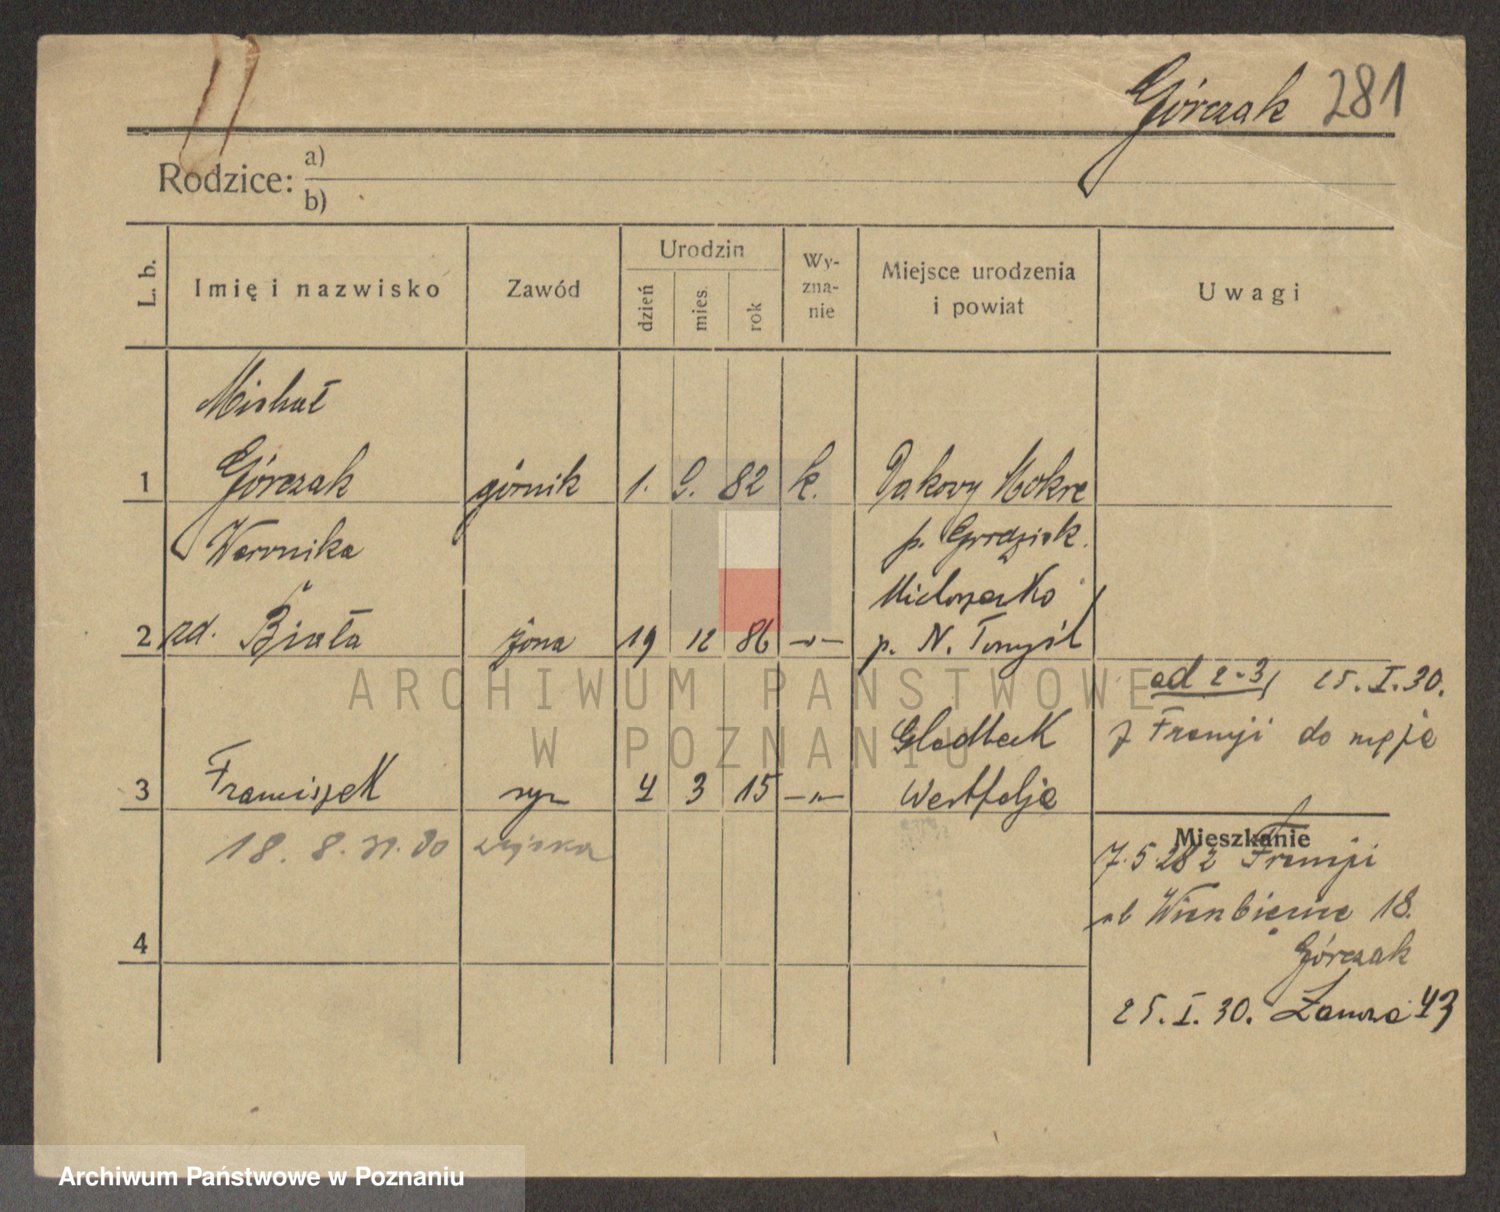 Górczak 281
Rodzice: a)
b)
L. b.
Imię i nazwisko
Zawód
Urodzin
dzień
mies.
rok
Wy-
zna-
nie
Miejsce urodzenia
i powiat
Uwagi
Michał
1 Górczak górnik 1. 9. 82 k. Ptakowy Mokre
Weronika p. Grodzisk.
Michorzewko
2 zd. Biała żona 19 12 86 —„— p. N. Tomyśl
od 2-3, 25. I. 30.
z Francji do męża
Gladbeck
3 Franciszek syn 4 3 15 —„— Westfalja
18. 8.
Mieszkanie
7.5.28 z Francji
ul 18.
Górczak
4
25. I. 30. 43
ARCHIWUM PAŃSTWOWE
W POZNANIU
Archiwum Państwowe w Poznaniu